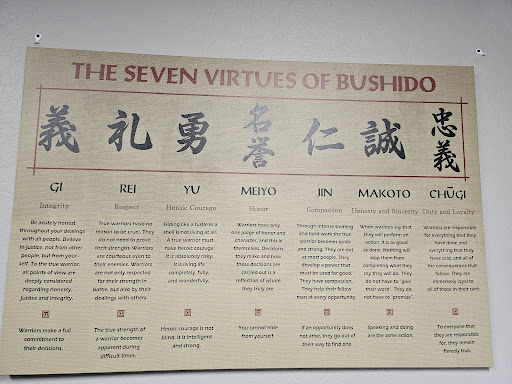 THE SEVEN VIRTUES OF BUSHIDO
義 礼 勇 名誉 仁 誠 忠義
GI
Integrity
Be acutely honest
throughout your dealings
with all people. Believe
in justice, not from other
people, but from your-
self. To the true warrior,
all points of view are
deeply considered
regarding honesty,
justice and integrity.
Warriors make a full
commitment to
their decisions.
REI
Respect
True warriors have no
reason to be cruel. They
do not need to prove
their strength. Warriors
are courteous even to
their enemies. Warriors
are not only respected
for their strength in
battle, but also by their
dealings with others.
The true strength of
a warrior becomes
apparent during
difficult times.
YU
Heroic Courage
Hiding like a turtle in a
shell is not living at all.
A true warrior must
have heroic courage.
It is absolutely risky.
It is living life
completely, fully,
and wonderfully.
Heroic courage is not
blind. It is intelligent
and strong.
MEIYO
Honor
Warriors have only
one judge of honor and
character, and this is
themselves. Decisions
they make and how
these decisions are
carried out is a
reflection of whom
they truly are.
You cannot hide
from yourself.
JIN
Compassion
Through intense training
and hard work the true
warrior becomes quick
and strong. They are not
as most people. They
develop a power that
must be used for good.
They have compassion.
They help their fellow
man at every opportunity.
If an opportunity does
not arise, they go out of
their way to find one.
MAKOTO
Honesty and Sincerity
When warriors say that
they will perform an
action, it is as good
as done. Nothing will
stop them from
completing what they
say they will do. They
do not have to "give
their word." They do
not have to "promise".
Speaking and doing
are the same action.
CHŪGI
Duty and Loyalty
Warriors are responsible
for everything that they
have done and
everything that they
have said, and all of
the consequences that
follow. They are
immensely loyal to
all of those in their care.
To everyone that
they are responsible
for, they remain
fiercely true.